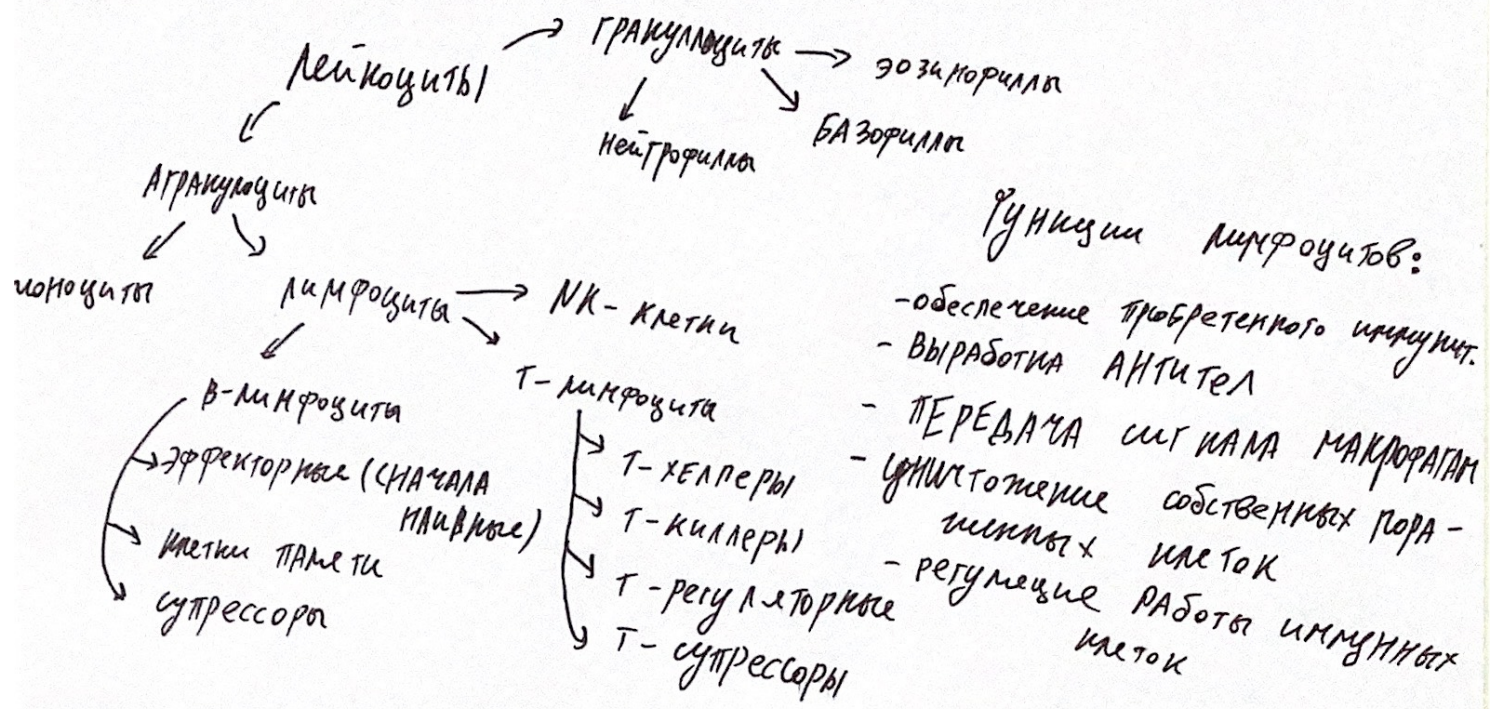 Лейкоциты
грануллоциты
эозинофиллы
нейтрофиллы
БАЗофиллы
Агранулоциты
моноциты
лимфоциты
NK - клетки
В-лимфоциты
эффекторные (СНАЧАЛА
НАИВНЫЕ)
клетки ПАМЯТИ
супрессоры
Т - лимфоциты
Т - ХЕЛПЕРЫ
Т - киллеры
Т - регуляторные
Т - супрессоры
Функции лимфоцитов:
- обеспечение приобретенного иммунит.
- ВЫРАБОТКА АНТИТЕЛ
- ПЕРЕДАЧА СИГНАЛА МАКРОФАГАМ
- уничтожение собственных пора-
женных клеток
- регуляция РАБОТЫ иммунных
клеток